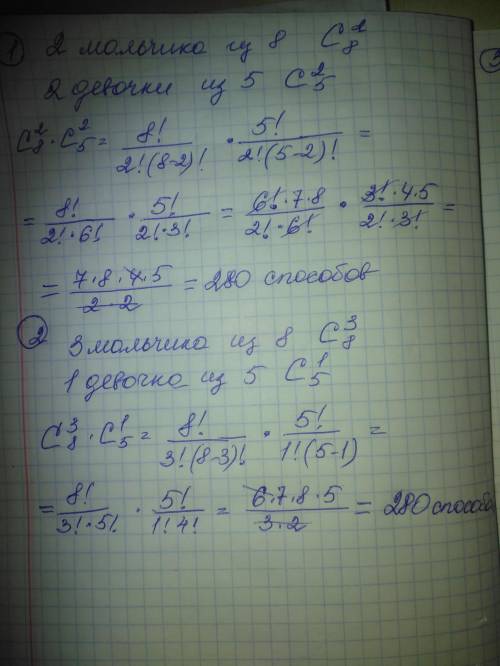 1 2 мальчика из 8 C₈²
2 девочки из 5 C₅²
C₈² · C₅² = 8!/(2!(8-2)!) · 5!/(2!(5-2)!) =
= 8!/(2!·6!) · 5!/(2!·3!) = (6!·7·8)/(2!·6!) · (3!·4·5)/(2!·3!) =
= (7·8·4·5)/(2·2) = 280 способов
2 3 мальчика из 8 C₈³
1 девочка из 5 C₅¹
C₈³ · C₅¹ = 8!/(3!(8-3)!) · 5!/(1!(5-1)) =
= 8!/(3!·5!) · 5!/(1!4!) = (6·7·8·5)/(3·2) = 280 способо
3